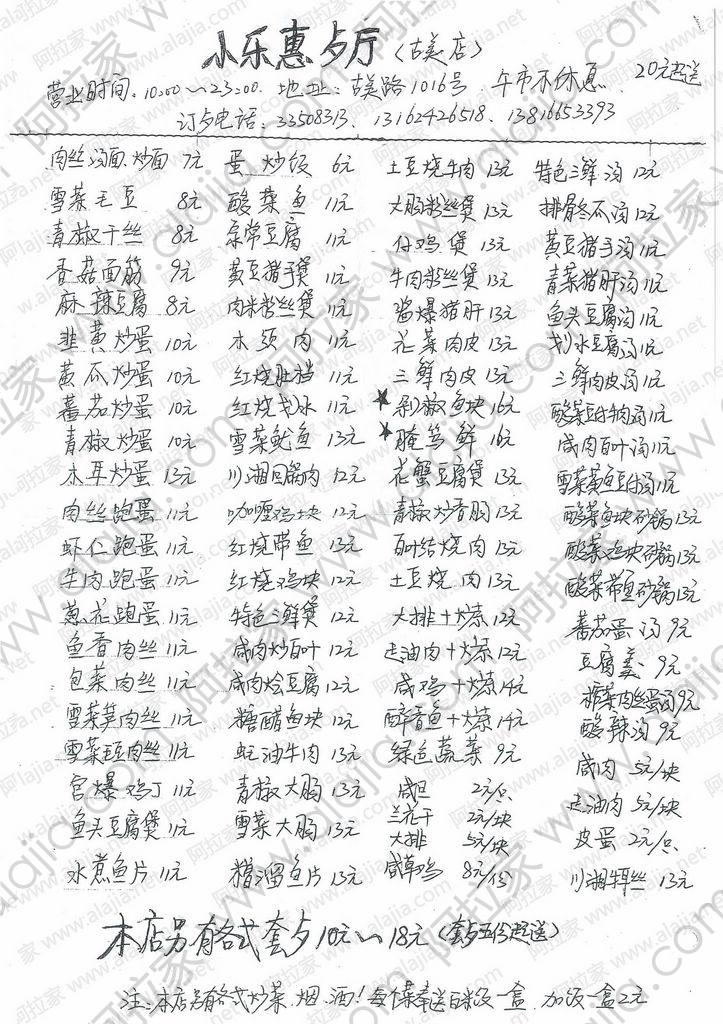 小乐惠歺厅（古美店）
营业时间：10:00～23:00 地址：古美路1016号 午市不休息 20元起送
订歺电话：33508313、13162426518、13816653393
肉丝汤面.炒面 7元 蛋炒饭 6元 土豆烧牛肉 13元 特色三鲜汤 12元
雪菜毛豆 8元 酸菜鱼 11元 大肠粉丝煲 13元 排骨冬瓜汤 12元
青椒干丝 8元 家常豆腐 11元 仔鸡煲 13元 黄豆猪手汤 11元
香菇面筋 9元 黄豆猪手煲 11元 牛肉粉丝煲 13元 青菜猪肝汤 11元
麻辣豆腐 8元 肉米粉丝煲 11元 酱爆猪肝 13元 鱼头豆腐汤 11元
韭黄炒蛋 10元 木须肉 11元 花菜肉皮 13元 划水豆腐汤 11元
黄瓜炒蛋 10元 红烧肚档 11元 三鲜肉皮 13元 三鲜肉皮汤 11元
蕃茄炒蛋 10元 红烧划水 11元 ★剁椒鱼块 16元
青椒炒蛋 10元 雪菜鱿鱼 13元 ★腌笃鲜 16元 咸肉百叶汤 11元
木耳炒蛋 13元 川湘回锅肉 12元 花蟹豆腐煲 13元
肉丝跑蛋 11元 咖喱鸡块 12元 青椒炒香肠 13元 酸菜鱼块砂锅 13元
虾仁跑蛋 11元 红烧带鱼 13元 百叶结烧肉 13元 酸菜鸡块砂锅 13元
牛肉跑蛋 11元 红烧鸡块 12元 土豆烧肉 13元 酸菜带鱼砂锅 13元
葱花跑蛋 11元 特色三鲜煲 12元 大排+炒菜 12元 蕃茄蛋汤 9元
鱼香肉丝 11元 咸肉炒百叶 12元 走油肉+炒菜 12元 豆腐羹 9元
包菜肉丝 11元 咸肉烩豆腐 12元 咸鸡+炒菜 14元 榨菜肉丝蛋汤 9元
雪菜笋肉丝 11元 糖醋鱼块 12元 醉香鱼+炒菜 14元 酸辣汤 9元
雪菜毛豆肉丝 11元 蚝油牛肉 13元 绿色蔬菜 9元 咸肉 5元/块
宫爆鸡丁 11元 青椒大肠 13元 咸旦 2元/只 走油肉 5元/块
鱼头豆腐煲 11元 雪菜大肠 13元 兰花干 2元/块 皮蛋 2元/只
大排 5元/块
水煮鱼片 11元 糟溜鱼片 13元 咸草鸡 8元/份 川湘牛丝 13元
本店另有各式套歺10元～18元（套歺五份起送）
注：本店另有各式炒菜.烟.酒！每个菜奉送白米饭一盒.加饭一盒2元
阿拉家 www.alajia.com
阿拉家 www.alajia.net